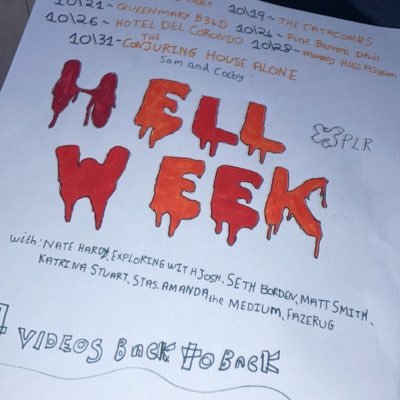 10\19~ THE CATACOMBS
10\21~ QUEEN MARY B340 10\24~ Pine Barrens Devil
10\26~ HOTEL DEL CORONDO 10\28~ Waverly Hills Asylum
10\31- THE CONJURING HOUSE ALONE
Sam and Colby:
HELL
XPLR
WEEK
with: NATE HARDY, EXPLORING WITH JOSH, SETH BORDEN, MATT SMITH,
KATRINA STUART, STAS, AMANDA the MEDIUM, FAZERUG
VIDEOS BACK TO BACK